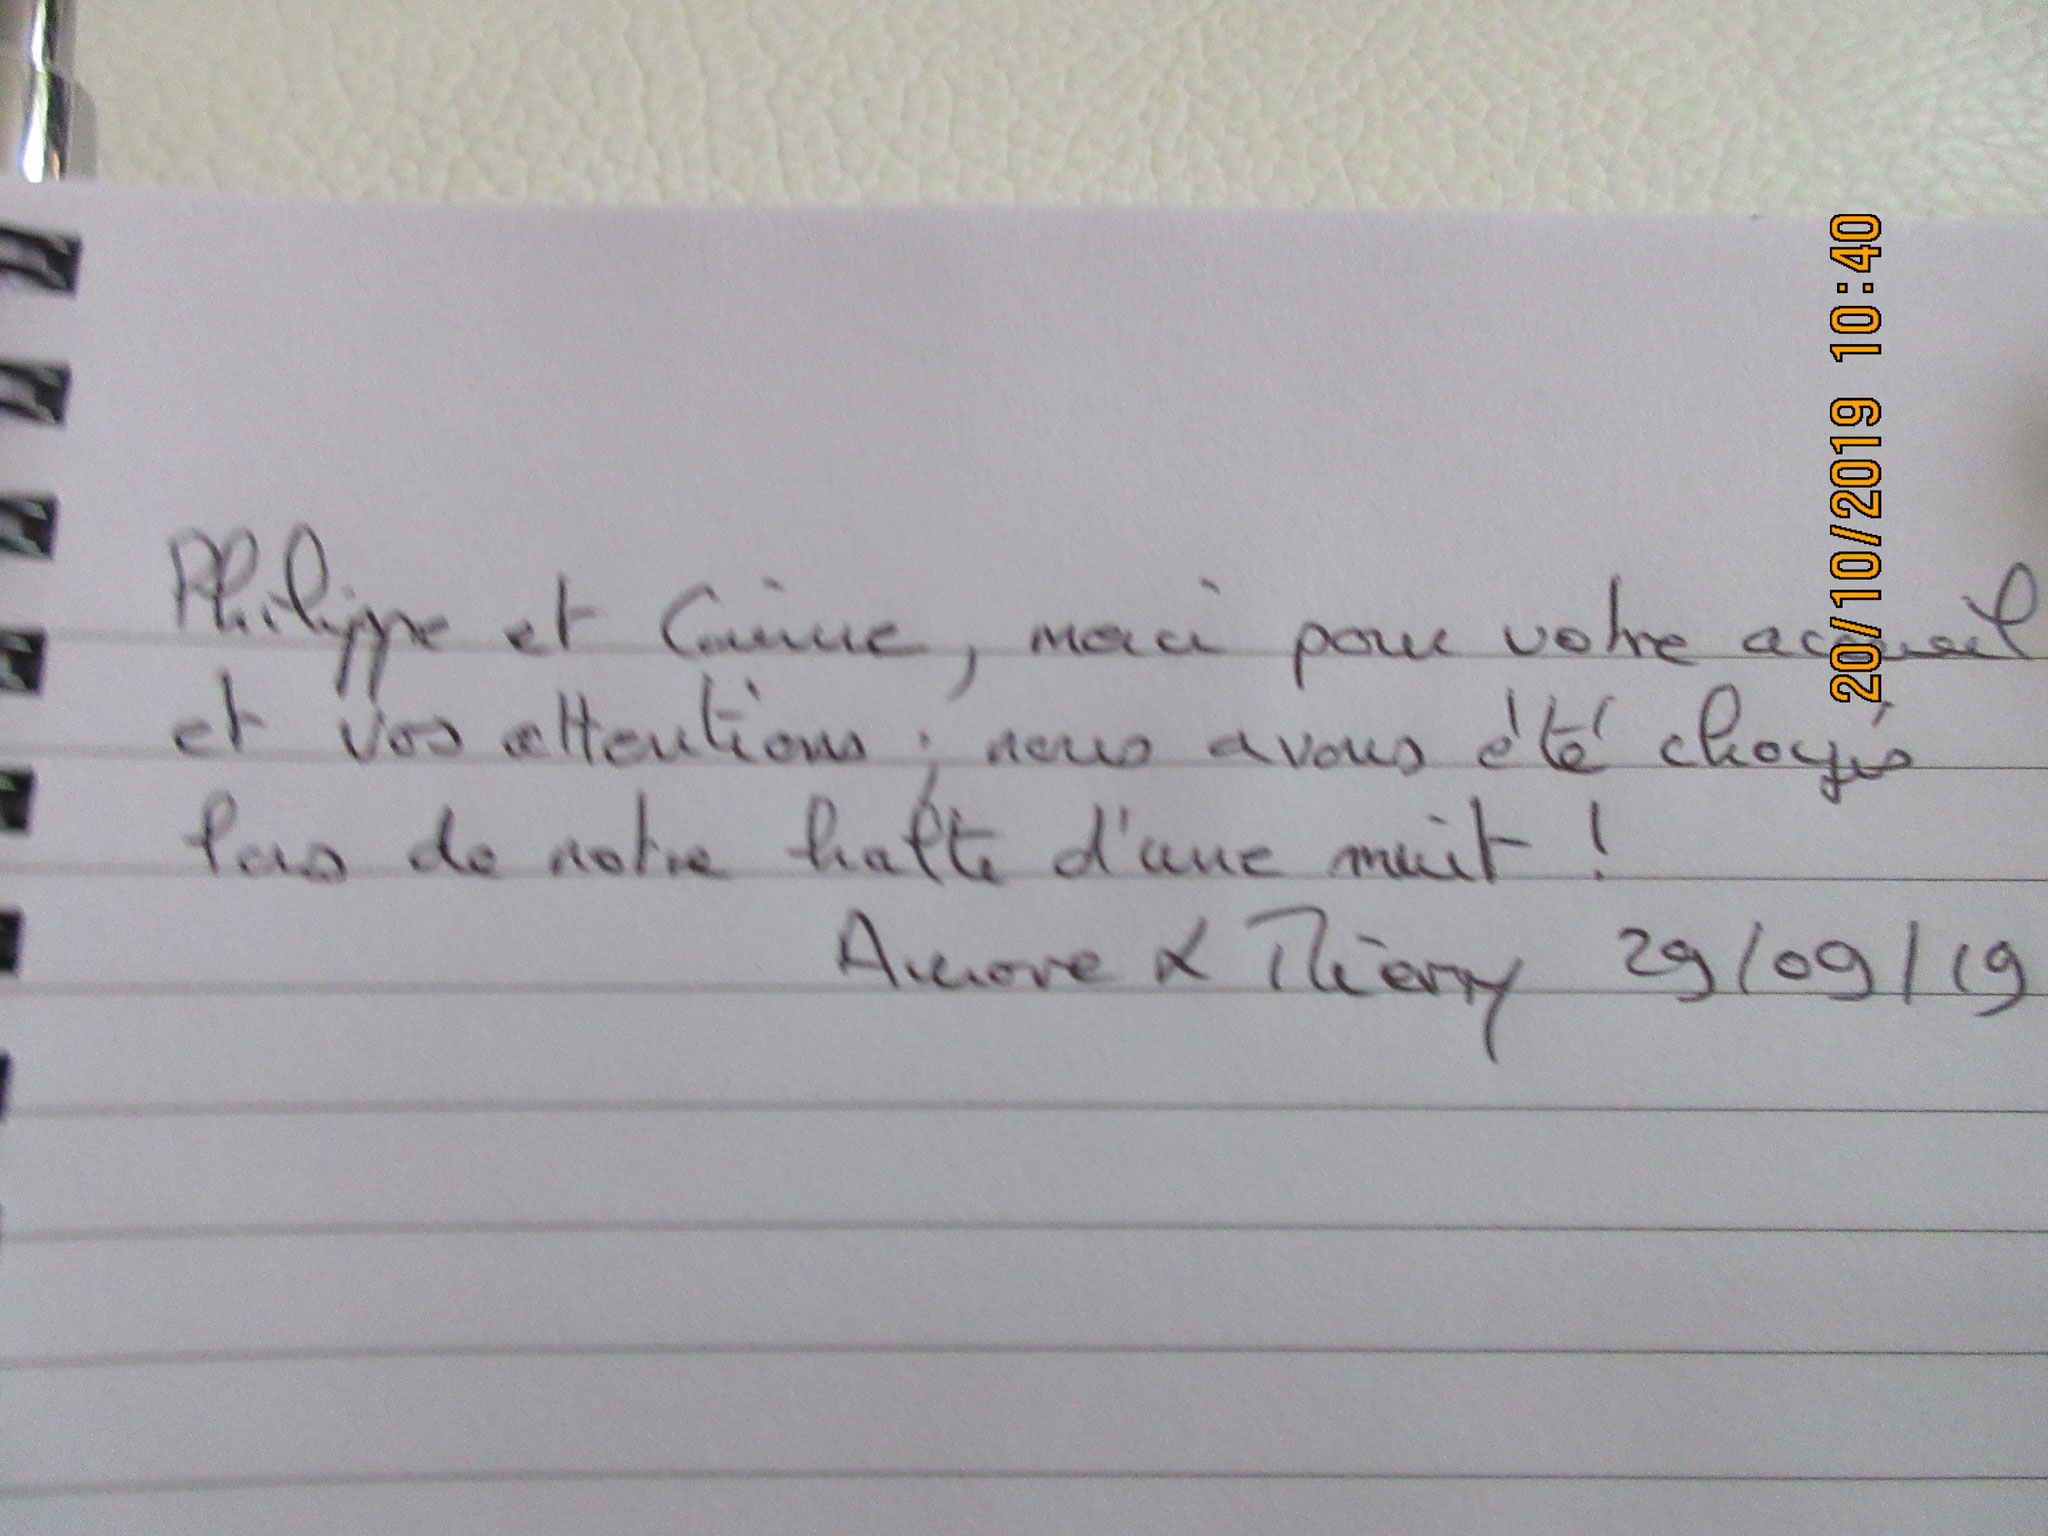 Philippe et Corinne, merci pour votre accueil
et vos attentions ; nous avons été choyés
lors de notre halte d'une nuit !
Aurore & Thierry 29/09/19
20/10/2019 10:40